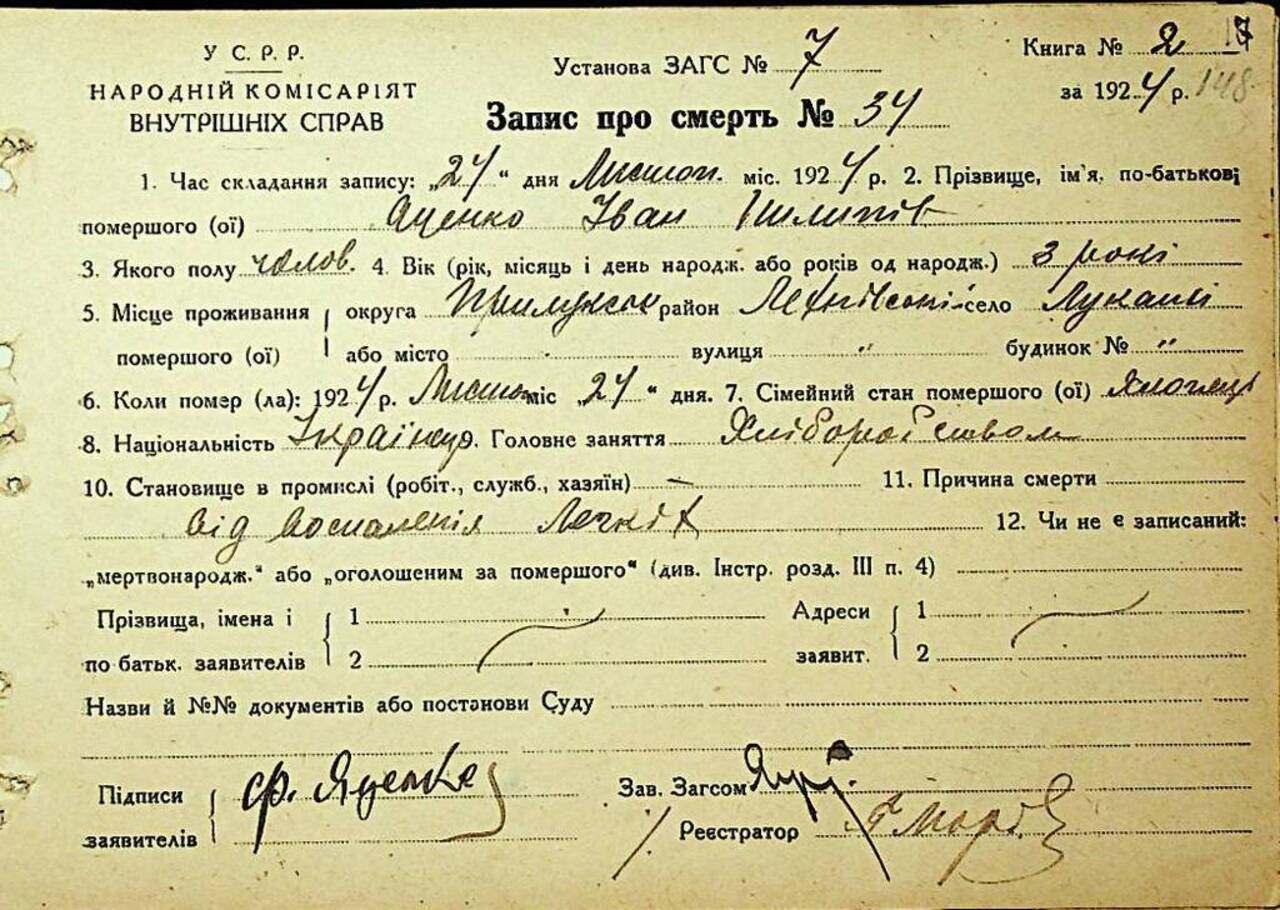 У С. Р. Р.
НАРОДНІЙ КОМІСАРІЯТ
ВНУТРІШНІХ СПРАВ
Установа ЗАГС № 7
Книга № 2
за 1924 р. 148
Запис про смерть № 34
1. Час складання запису: „24“ дня Листоп. міс. 1924 р. 2. Прізвище, ім'я, по-батькові
помершого (ої) Яценко Іван Пилипів
3. Якого полу чолов. 4. Вік (рік, місяць і день народж. або років од народж.) 3 рокі
5. Місце проживання помершого (ої) округа Прилуксок район село Лукаші
або місто вулиця " будинок № "
6. Коли помер (ла): 1924 р. Листоп міс „24“ дня. 7. Сімейний стан помершого (ої) Хлопець
8. Національність Українцр. Головне заняття Хліборобством
10. Становище в промислі (робіт., служб., хазяїн) — 11. Причина смерти
від воспаленія Легкіх 12. Чи не є записаний:
„мертвонародж.“ або „оголошеним за помершого“ (див. Інстр. розд. III п. 4)
Прізвища, імена і по батьк. заявителів 1 2
Адреси заявит. 1 2
Назви й №№ документів або постанови Суду
Підписи заявителів Ф. Яценко
Зав. Загсом
Реєстратор